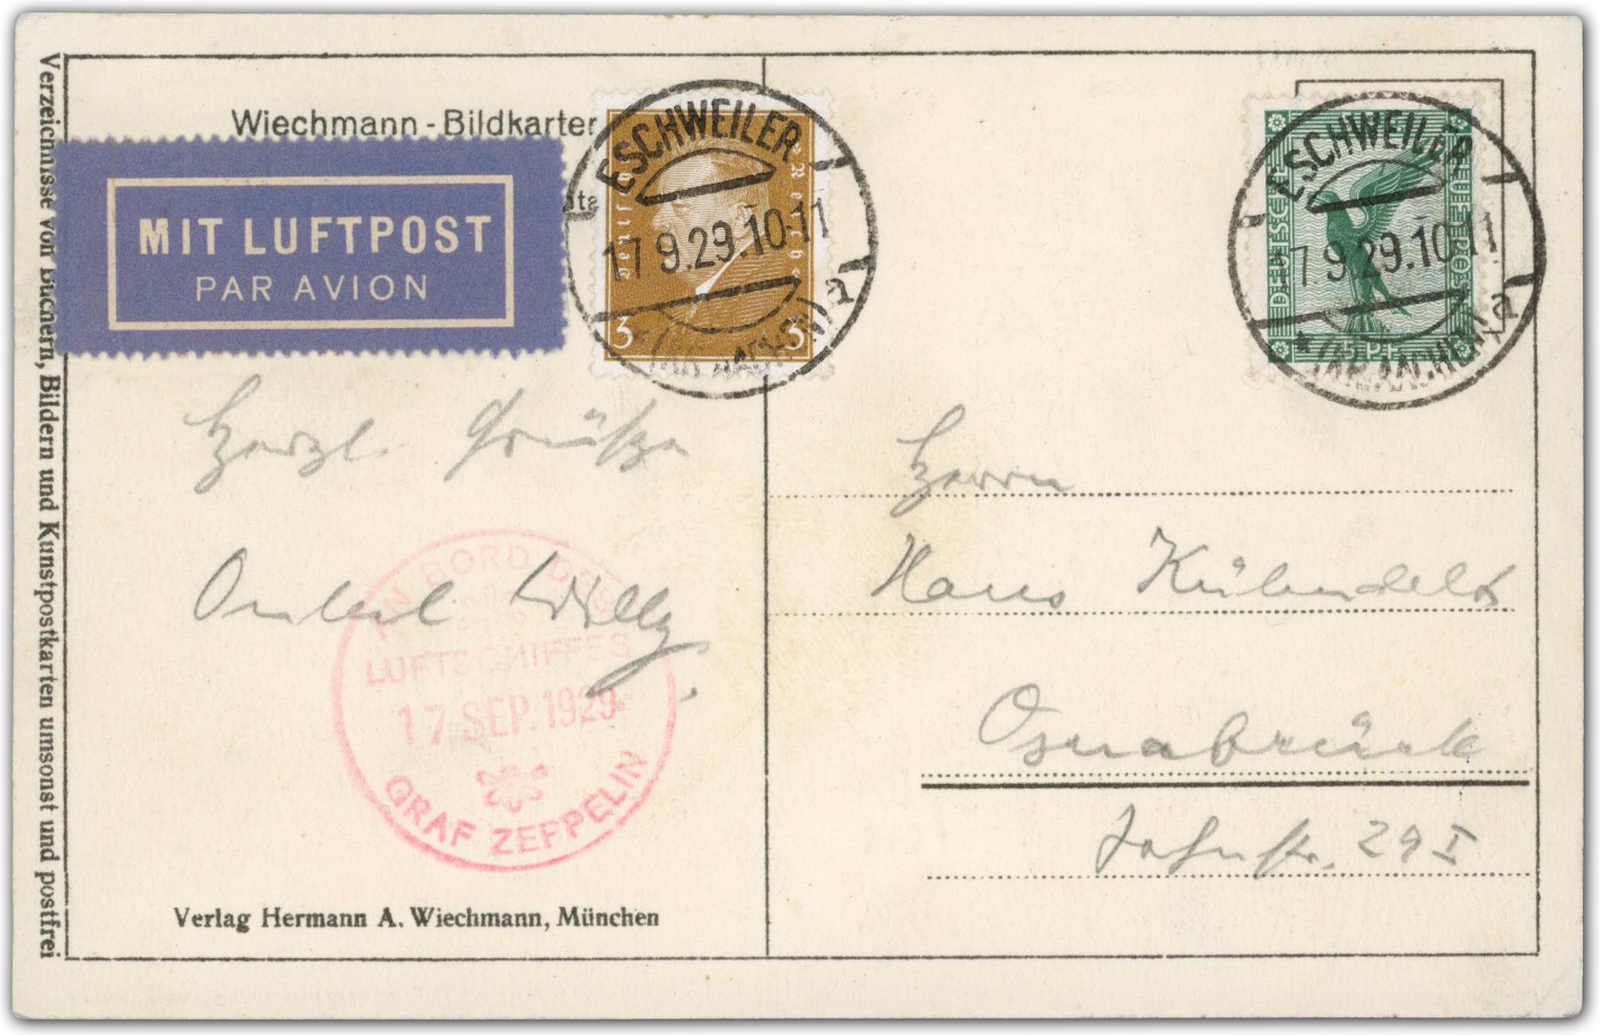 Verzeichnisse von Büchern, Bildern und Kunstpostkarten umsonst und postfrei
Wiechmann-Bildkarten
MIT LUFTPOST
PAR AVION
ESCHWEILER
17.9.29.10-11
(KR. AACHEN) a
Deutsches Reich
3 3
ESCHWEILER
17.9.29.10-11
* (KR. AACHEN) a
DEUTSCHE FLUGPOST
5 PF
Herzl. Grüße
Onkel Willy.
AN BORD DES
LUFTSCHIFFES
17 SEP. 1929
GRAF ZEPPELIN
Verlag Hermann A. Wiechmann, München
Herrn
Hans
Osnabrück
Jahnstr. 29 I